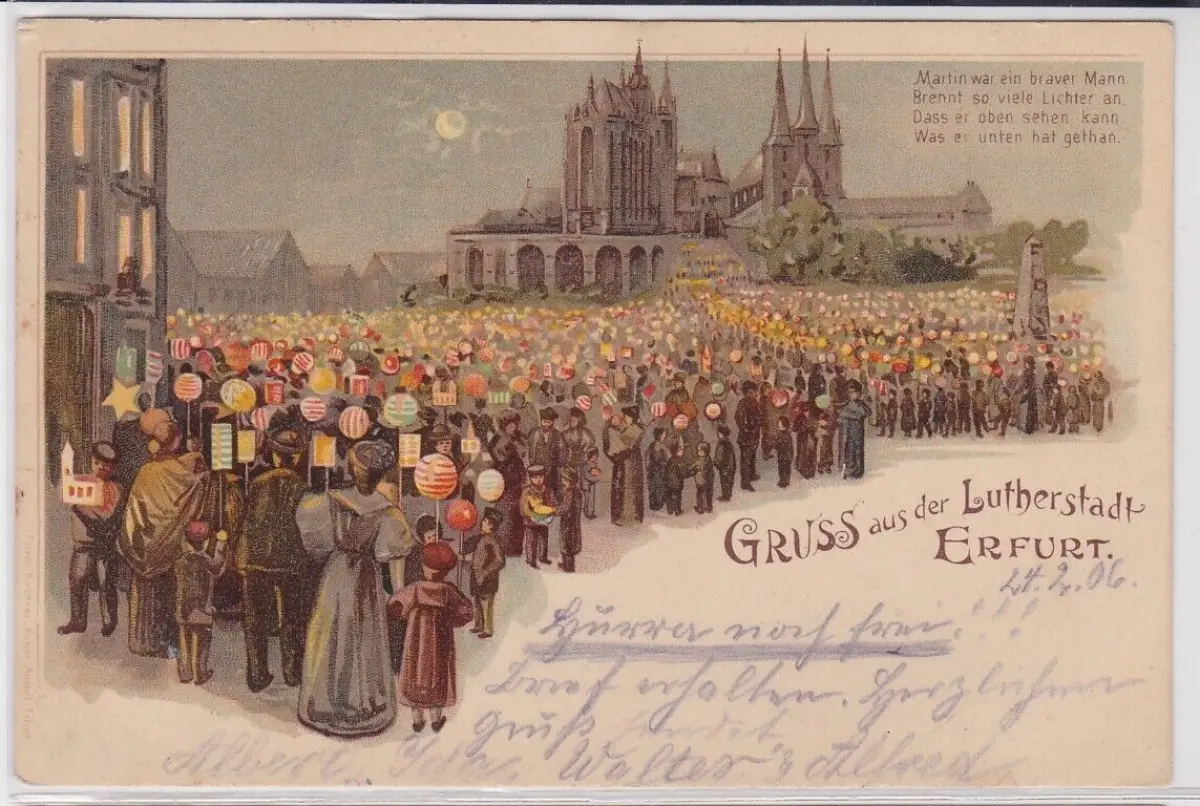 Martin war ein braver Mann
Brennt so viele Lichter an,
Dass er oben sehen kann,
Was er unten hat gethan.
GRUSS aus der Lutherstadt
ERFURT.
24.2.06.
Hurra noch frei!!!
Brief erhalten. Herzlichen
Gruß sendet
Albert, Ida, Walter & Alfred